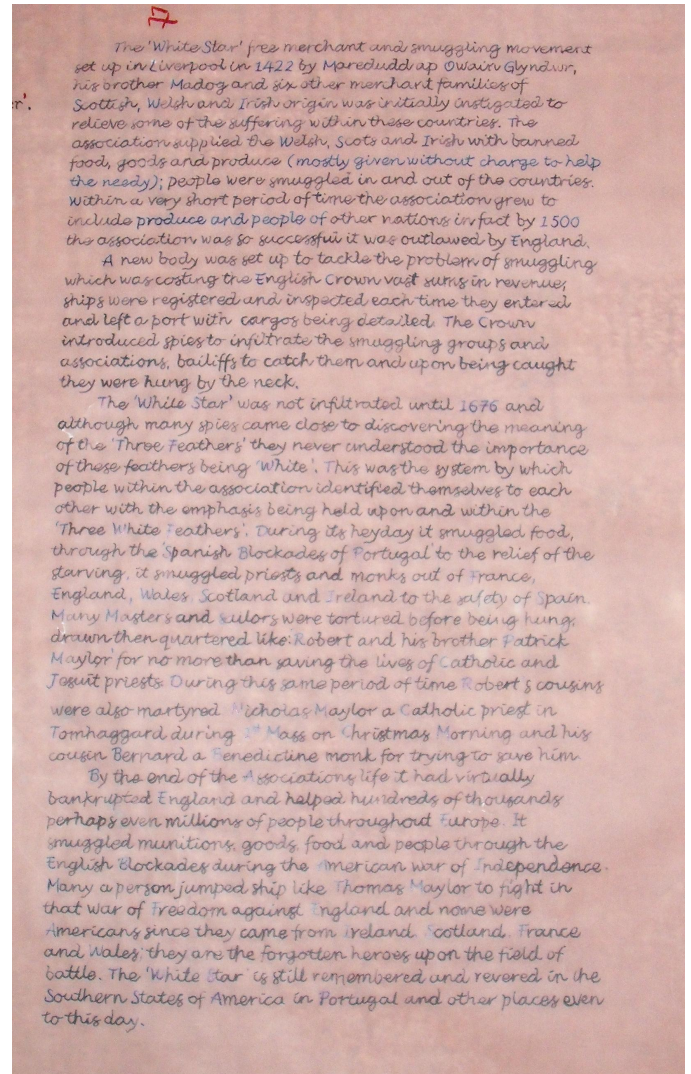 7
r'.
The 'White Star' free merchant and smuggling movement
set up in Liverpool in 1422 by Maredudd ap Owain Glyndwr,
his brother Madog and six other merchant families of
Scottish, Welsh and Irish origin was initially instigated to
relieve some of the suffering within these countries. The
association supplied the Welsh, Scots and Irish with banned
food, goods and produce (mostly given without charge to help
the needy); people were smuggled in and out of the countries.
Within a very short period of time the association grew to
include produce and people of other nations in fact by 1500
the association was so successful it was outlawed by England.
A new body was set up to tackle the problem of smuggling
which was costing the English Crown vast sums in revenue;
ships were registered and inspected each time they entered
and left a port with cargos being detailed. The Crown
introduced spies to infiltrate the smuggling groups and
associations, bailiffs to catch them and upon being caught
they were hung by the neck.
The 'White Star' was not infiltrated until 1676 and
although many spies came close to discovering the meaning
of the 'Three Feathers' they never understood the importance
of these feathers being 'White'. This was the system by which
people within the association identified themselves to each
other with the emphasis being held upon and within the
'Three White Feathers'. During its heyday it smuggled food,
through the 'Spanish Blockades of Portugal' to the relief of the
starving, it smuggled priests and monks out of France,
England, Wales, Scotland and Ireland to the safety of Spain.
Many Masters and Sailors were tortured before being hung,
drawn then quartered like: Robert and his brother Patrick
Maylor for no more than saving the lives of Catholic and
Jesuit priests. During this same period of time Robert's cousins
were also martyred Nicholas Maylor a Catholic priest in
Tomhaggard during 1st Mass on Christmas Morning and his
cousin Bernard a Benedictine monk for trying to save him.
By the end of the Associations life it had virtually
bankrupted England and helped hundreds of thousands
perhaps even millions of people throughout Europe. It
smuggled munitions, goods, food and people through the
English Blockades during the American war of Independence.
Many a person jumped ship like Thomas Maylor to fight in
that war of Freedom against England and none were
Americans since they came from Ireland, Scotland, France
and Wales; they are the forgotten heroes upon the field of
battle. The 'White Star' is still remembered and revered in the
Southern States of America in Portugal and other places even
to this day.